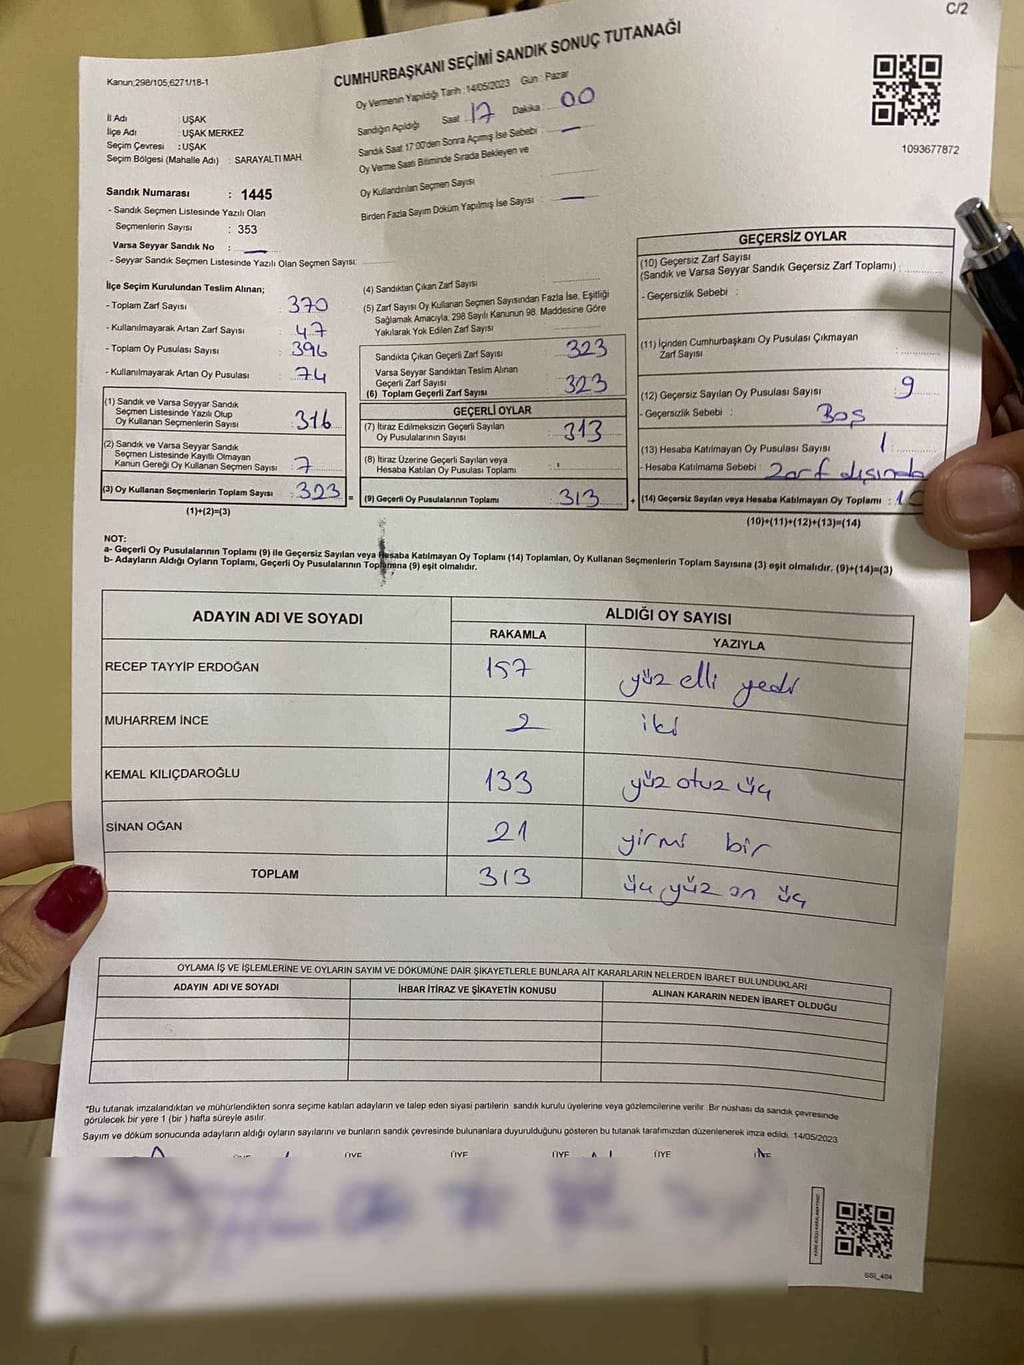 C/2
Kanun;298/105,6271/18-1
CUMHURBAŞKANI SEÇİMİ SANDIK SONUÇ TUTANAĞI
Oy Vermenin Yapıldığı Tarih : 14/05/2023 Gün : Pazar
Sandığın Açıldığı Saat : 17 Dakika : 00
Sandık Saat 17:00'den Sonra Açımış İse Sebebi : —
Oy Verme Saati Bitiminde Sırada Bekleyen ve
Oy Kullandırılan Seçmen Sayısı
Birden Fazla Sayım Döküm Yapılmış İse Sayısı : —
1093677872
İl Adı : UŞAK
İlçe Adı : UŞAK MERKEZ
Seçim Çevresi : UŞAK
Seçim Bölgesi (Mahalle Adı) : SARAYALTI MAH.
Sandık Numarası : 1445
- Sandık Seçmen Listesinde Yazılı Olan
Seçmenlerin Sayısı : 353
Varsa Seyyar Sandık No : —
- Seyyar Sandık Seçmen Listesinde Yazılı Olan Seçmen Sayısı:
İlçe Seçim Kurulundan Teslim Alınan;
- Toplam Zarf Sayısı : 370
- Kullanılmayarak Artan Zarf Sayısı : 47
- Toplam Oy Pusulası Sayısı : 396
- Kullanılmayarak Artan Oy Pusulası : 74
(1) Sandık ve Varsa Seyyar Sandık
Seçmen Listesinde Yazılı Olup
Oy Kullanan Seçmenlerin Sayısı : 316
(2) Sandık ve Varsa Seyyar Sandık
Seçmen Listesinde Kayıtlı Olmayan
Kanun Gereği Oy Kullanan Seçmen Sayısı : 7
(3) Oy Kullanan Seçmenlerin Toplam Sayısı : 323 =
(1)+(2)=(3)
(4) Sandıktan Çıkan Zarf Sayısı
(5) Zarf Sayısı Oy Kullanan Seçmen Sayısından Fazla İse, Eşitliği
Sağlamak Amacıyla, 298 Sayılı Kanunun 98. Maddesine Göre
Yakılarak Yok Edilen Zarf Sayısı
Sandıkta Çıkan Geçerli Zarf Sayısı : 323
Varsa Seyyar Sandıktan Teslim Alınan
Geçerli Zarf Sayısı
(6) Toplam Geçerli Zarf Sayısı : 323
GEÇERLİ OYLAR
(7) İtiraz Edilmeksizin Geçerli Sayılan
Oy Pusulalarının Sayısı : 313
(8) İtiraz Üzerine Geçerli Sayılan veya
Hesaba Katılan Oy Pusulası Toplamı :
(9) Geçerli Oy Pusulalarının Toplamı : 313 +
GEÇERSİZ OYLAR
(10) Geçersiz Zarf Sayısı
(Sandık ve Varsa Seyyar Sandık Geçersiz Zarf Toplamı) :
- Geçersizlik Sebebi :
(11) İçinden Cumhurbaşkanı Oy Pusulası Çıkmayan
Zarf Sayısı :
(12) Geçersiz Sayılan Oy Pusulası Sayısı : 9
- Geçersizlik Sebebi : Boş
(13) Hesaba Katılmayan Oy Pusulası Sayısı : 1
- Hesaba Katılmama Sebebi : Zarf dışında
(14) Geçersiz Sayılan veya Hesaba Katılmayan Oy Toplamı : 10
(10)+(11)+(12)+(13)=(14)
NOT:
a- Geçerli Oy Pusulalarının Toplamı (9) ile Geçersiz Sayılan veya Hesaba Katılmayan Oy Toplamı (14) Toplamları, Oy Kullanan Seçmenlerin Toplam Sayısına (3) eşit olmalıdır. (9)+(14)=(3)
b- Adayların Aldığı Oyların Toplamı, Geçerli Oy Pusulalarının Toplamına (9) eşit olmalıdır.
ADAYIN ADI VE SOYADI ALDIĞI OY SAYISI
RAKAMLA YAZIYLA
RECEP TAYYİP ERDOĞAN 157 yüz elli yedi
MUHARREM İNCE 2 iki
KEMAL KILIÇDAROĞLU 133 yüz otuz üç
SİNAN OĞAN 21 yirmi bir
TOPLAM 313 üç yüz on üç
OYLAMA İŞ VE İŞLEMLERİNE VE OYLARIN SAYIM VE DÖKÜMÜNE DAİR ŞİKAYETLERLE BUNLARA AİT KARARLARIN NELERDEN İBARET BULUNDUKLARI
ADAYIN ADI VE SOYADI İHBAR İTİRAZ VE ŞİKAYETİN KONUSU ALINAN KARARIN NEDEN İBARET OLDUĞU
*Bu tutanak imzalandıktan ve mühürlendikten sonra seçime katılan adayların ve talep eden siyasi partilerin sandık kurulu üyelerine veya gözlemcilerine verilir. Bir nüshası da sandık çevresinde
görülecek bir yere 1 (bir) hafta süreyle asılır.
Sayım ve döküm sonucunda adayların aldığı oyların sayılarını ve bunların sandık çevresinde bulunanlara duyurulduğunu gösteren bu tutanak tarafımızdan düzenlenerek imza edildi. 14/05/2023
ÜYE ÜYE ÜYE ÜYE
SSI_404